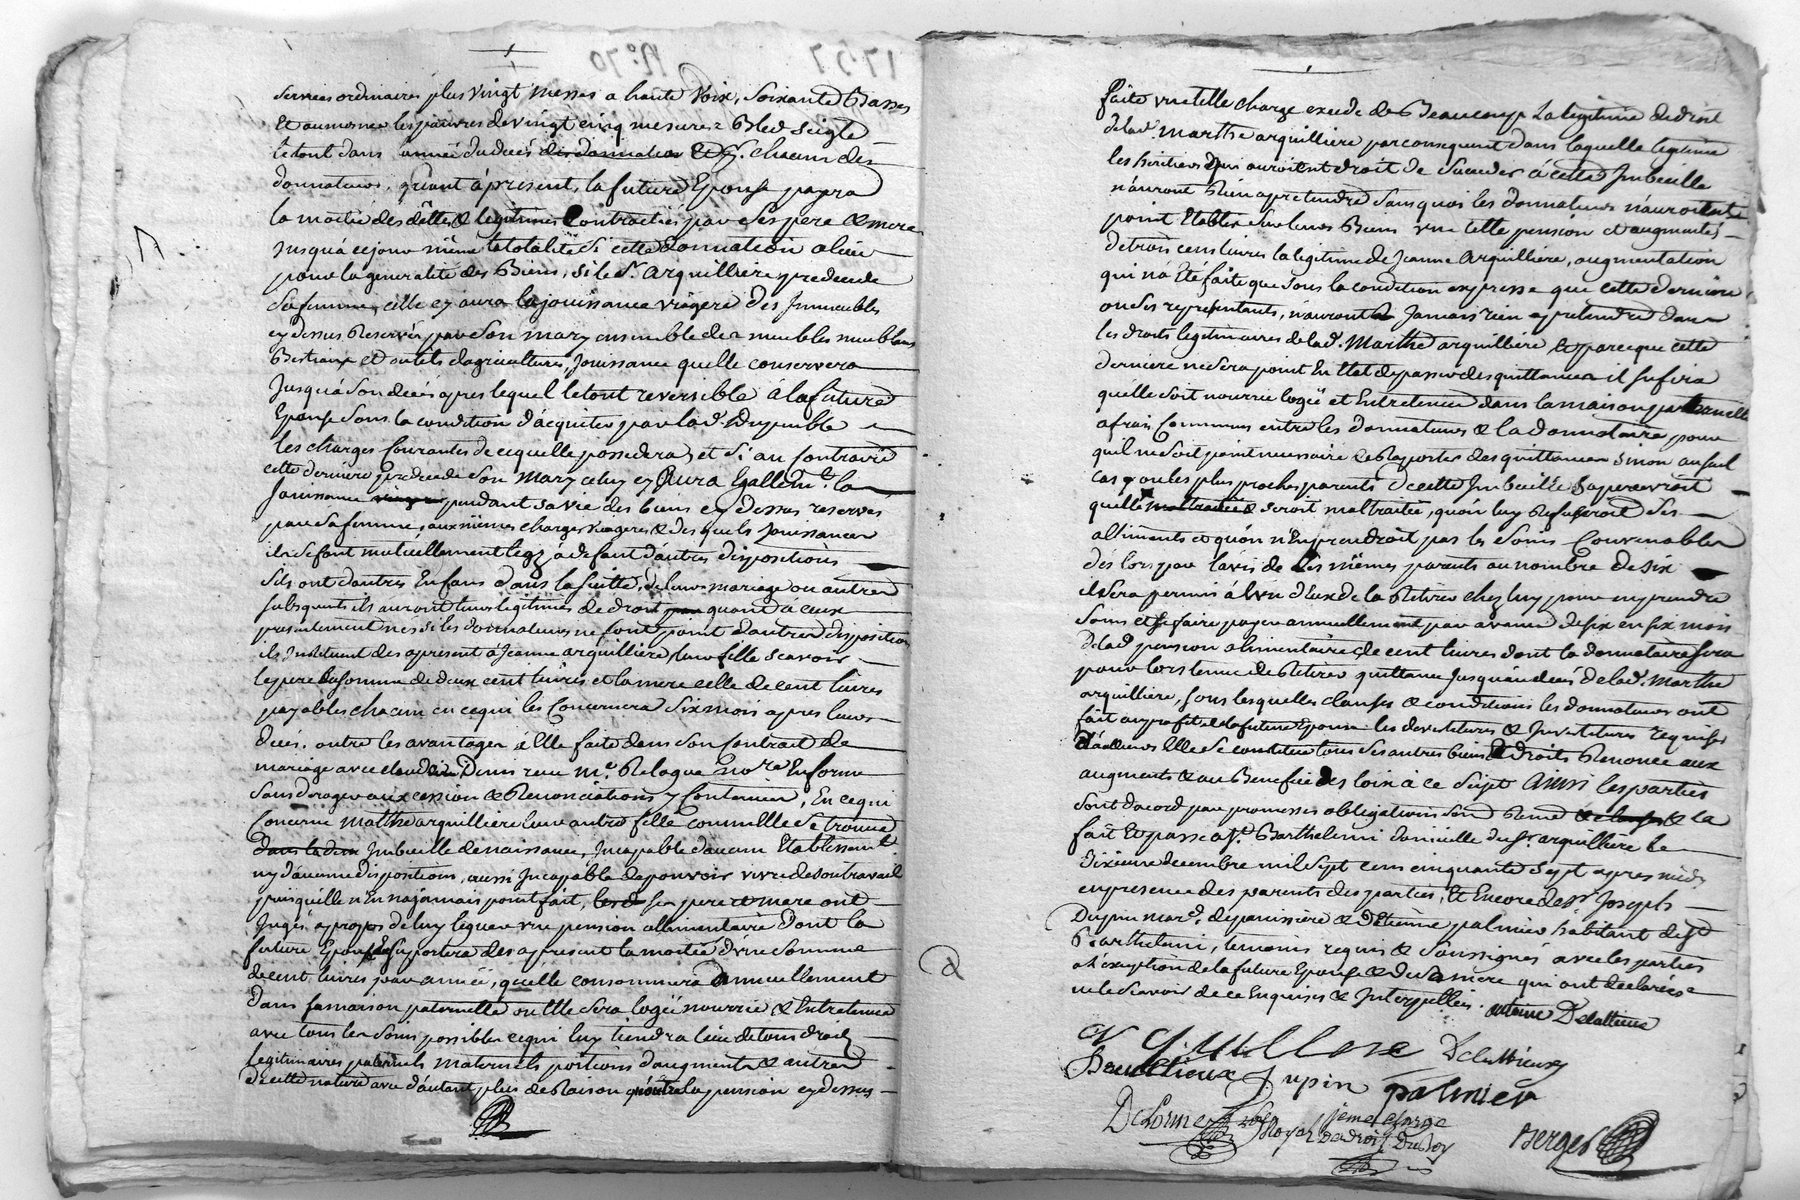 services ordinaires plus vingt messes a haute voix, soixante Basses
Et aumosner les pauvres de vingt cinq mesures Bled seigle
le tout dans année du decés chacun des
donnateurs, quant á present, la future Epouse payera
la moitié des dêttes & legitimes Contractées par ses pere & mere
jusqu'á ce jour même la totalité si cette donnation a lieu
pour la generalité des Biens, si le Sr. arquilliere predecede
sa femme, celle cy aura la jouissance viagere des Immeubles
cy dessus Reservés par son mary ensemble des meubles meublans
Bestiaux et outils d'agriculture, Jouissance quelle conservera
Jusquá son decés apres lequel le tout reversible á la future
Epouse sous la condition d'acquiter par lad. Dupuible
les charges Courantes de ce quelle possedera, et si au Contraire
cette derniere predecede son mary celuy cy aura Egallemt. la
Jouissance pendant sa vie des biens cy dessus reservés
par sa femme, aux mêmes charges viageres & desquels Jouissances
ils se font mutuellement legs á defaut d'autres dispositions
Sils ont d'autres Enfans dans la suitte, de leur mariage ou autres
subsequents ils auront leurs legitimes de droit quant á ceux
presentement nés si les donnateurs ne font point d'autres disposition
ils Instituent des apresent á Jeanne arquilliere leur fille scavoir
le pere la somme de deux cent livres et la mere celle de cent livres
payables chacun en ce qui les Concernera six mois apres leurs
decés. outre les avantages á Elle faits dans son Contrat de
mariage avec Denis reçu me. Relogue nore En forme
sans deroger aux cession & Renonciations y Contenues, En ce qui
Concerne marthe arquilliere leur autre fille comme Elle se trouve
Imbecille de naissance, Incapable d'aucun Etablissemt.
ny d'aucune dispositions, aussi Incapable de pouvoir vivre de son travail
puisquelle n'En na jamais point fait, ses pere & mere ont
Jugés apropos de luy leguer une pension allimentaire Dont la
future Epouse supportera des apresent la moitié d'une somme
de cent livres par année, quelle consommera annuellement
Dans sa maison paternelle ou Elle sera logée nourrie & Entretenue
avec tous les soins possibles ce qui luy tiendra lieu de tous droits
Legitimaires paternels maternels portions d'augments & autres
de cette nature avec d'autant plus de Raison que la pension cy dessus
faite vu telle charge excede de Beaucoup la legitime de droit
de lad. marthe arquilliere par consequent dans laquelle legitime
les heritiers qui auroient droit de succeder á cette Imbecille
n'auront Rien a pretendre sans quoi les donnateurs n'auroient
point Etablis sur leurs Biens une telle pension et augmenté
de trois cens livres la legitime de Jeanne arquilliere, augmentation
qui n'a Eté faite que sous la condition expresse que cette derniere
ou ses representants, n'auront Jamais rien a pretendre dans
les droits legitimaires de lad. Marthe arquilliere, Et parce que cette
derniere ne sera point En Etat de passer des quittances il sufira
quelle soit nourrie logée et Entretenue dans la maison paternelle
a frais Communs entre les donnateurs & la donnataire, pour
quil ne soit point necessaire de Raporter des quittances sinon au seul
cas ou les plus proches parents de cette Imbecille sapercevroit
quelle seroit maltraitée, quon luy Refuseroit des
alliments et quon n'En prendroit pas les soins Convenables
dés lors par lavis de Ces mêmes parents au nombre de six
il sera permis á l'un d'Eux de la Retirer chez luy pour en prendre
soins et se faire payer annuellement par avance de six en six mois
delad. pension alimentaire de cent livres dont la donnataire sera
pour lors tenue de Retirer quittance Jusquau decés de lad. Marthe
arquilliere, sous lesquelles clauses & conditions les donnateurs ont
fait au profit de la future Epouse les devestitures & Investitures requises
Elle se constitue tous ses autres biens & droits Renonce aux
augments & au Benefice des loix á ce sujet Ainsi les parties
sont d'acord par promesses obligations sous peine & la
fait Et passé a St. Barthelemi domicille du Sr. arquilliere le
dixieme decembre mil sept cens cinquante sept apres midy
en presence des parents des parties, Et Encore de Sr. Joseph
Dupin mard. de panissiere & d'Etienne palmier habitant de St.
Barthelemi, temoins requis & soussignés avec les parties
a l'exception de la future Epouse & de sa mere qui ont declarées
ne le Scavoir de ce Enquises & Interpellées. antoine Delattieux
arquillere Delattieux
Jupin palmier
Delorme
Berger